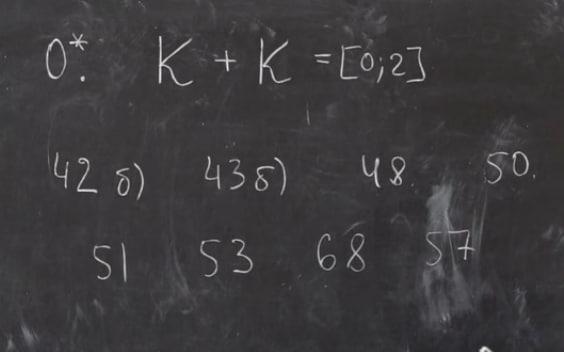 0*. K + K = [0;2]
42 б) 43 б) 48. 50.
51 53 68 57